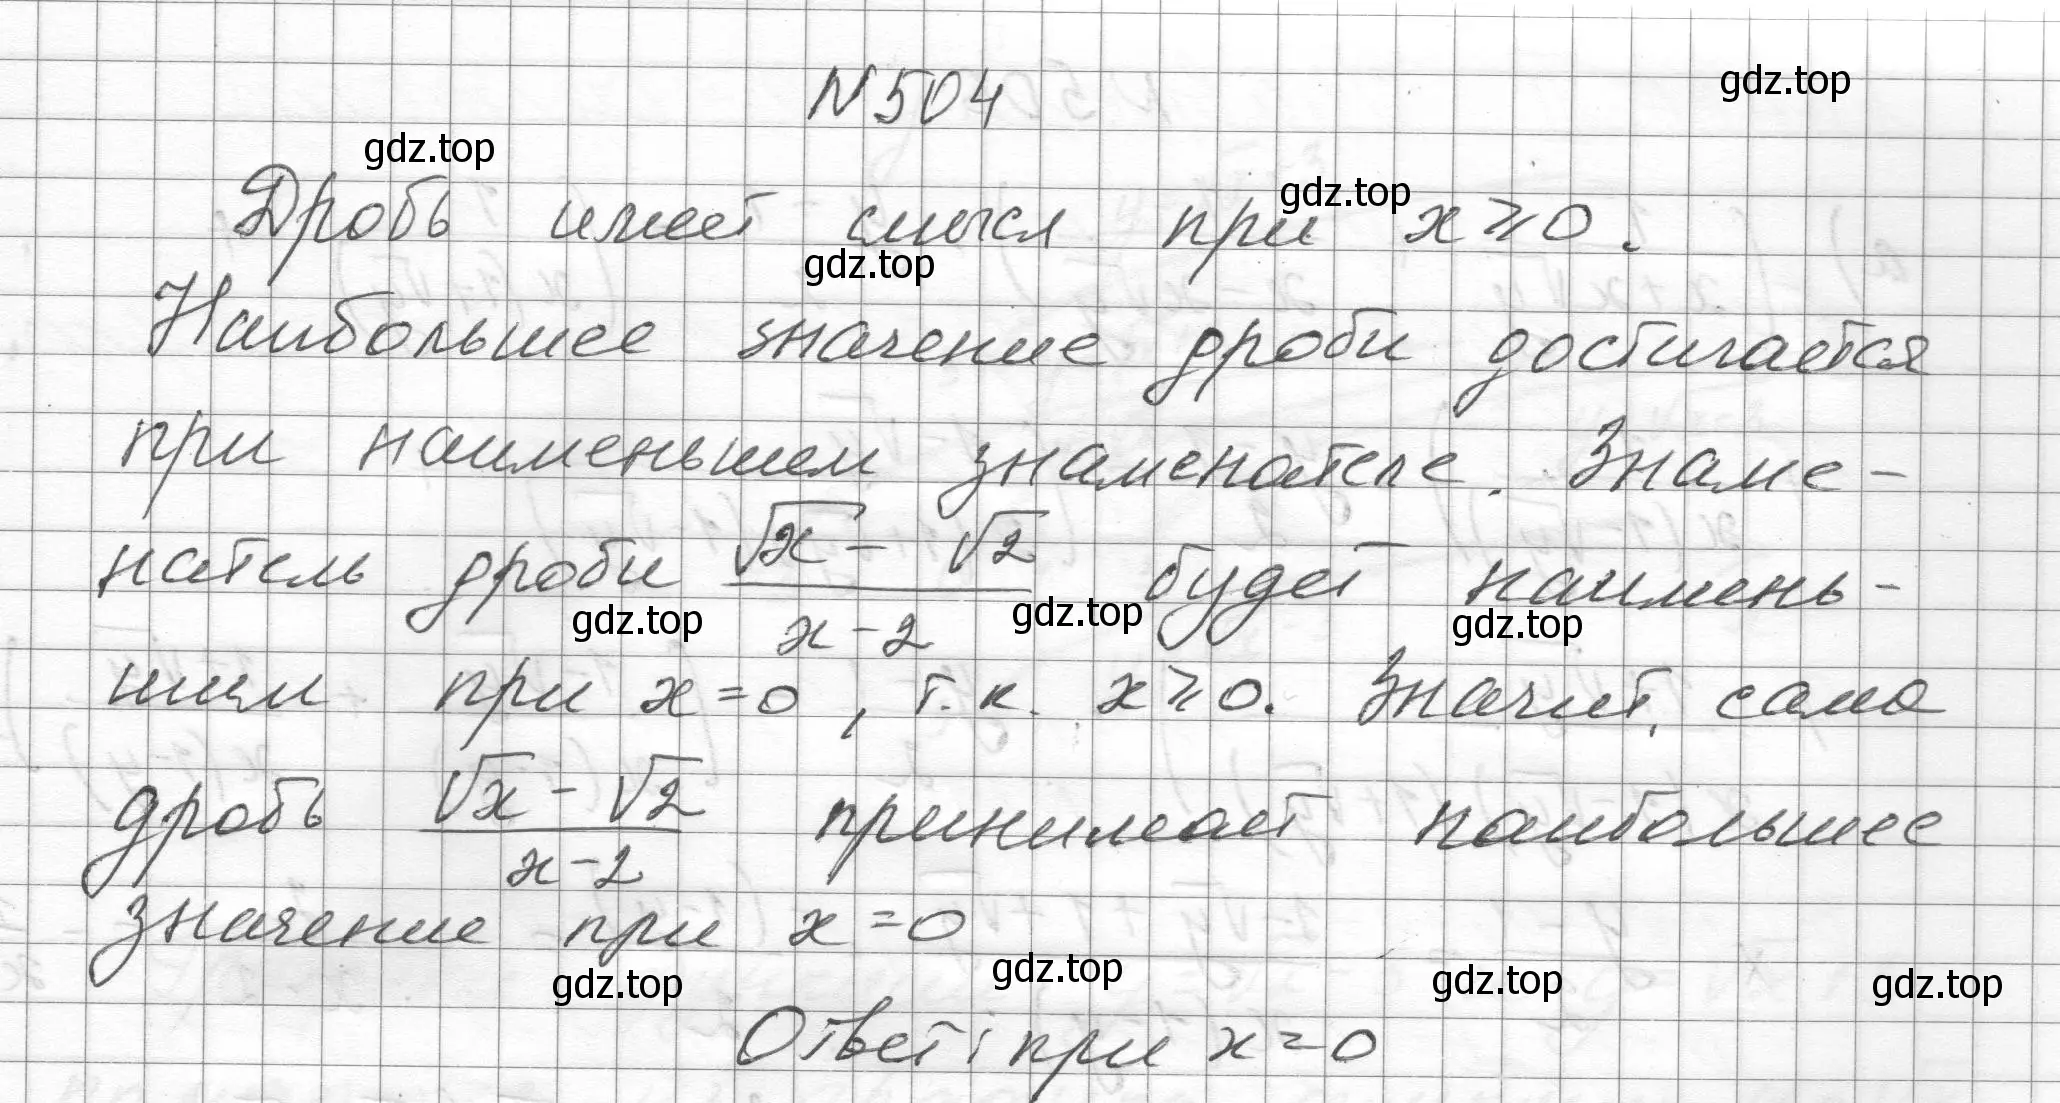 N504
Дробь имеет смысл при x ≥ 0.
Наибольшее значение дроби достигается
при наименьшем знаменателе. Знаме-
натель дроби (√x - √2)/(x - 2) будет наимень-
шим при x = 0, т.к. x ≥ 0. Значит, сама
дробь (√x - √2)/(x - 2) принимает наибольшее
значение при x = 0
Ответ: при x = 0
gdz.top
gdz.top
gdz.top
gdz.top
gdz.top
gdz.top
gdz.top
gdz.top
gdz.top
gdz.top
gdz.top